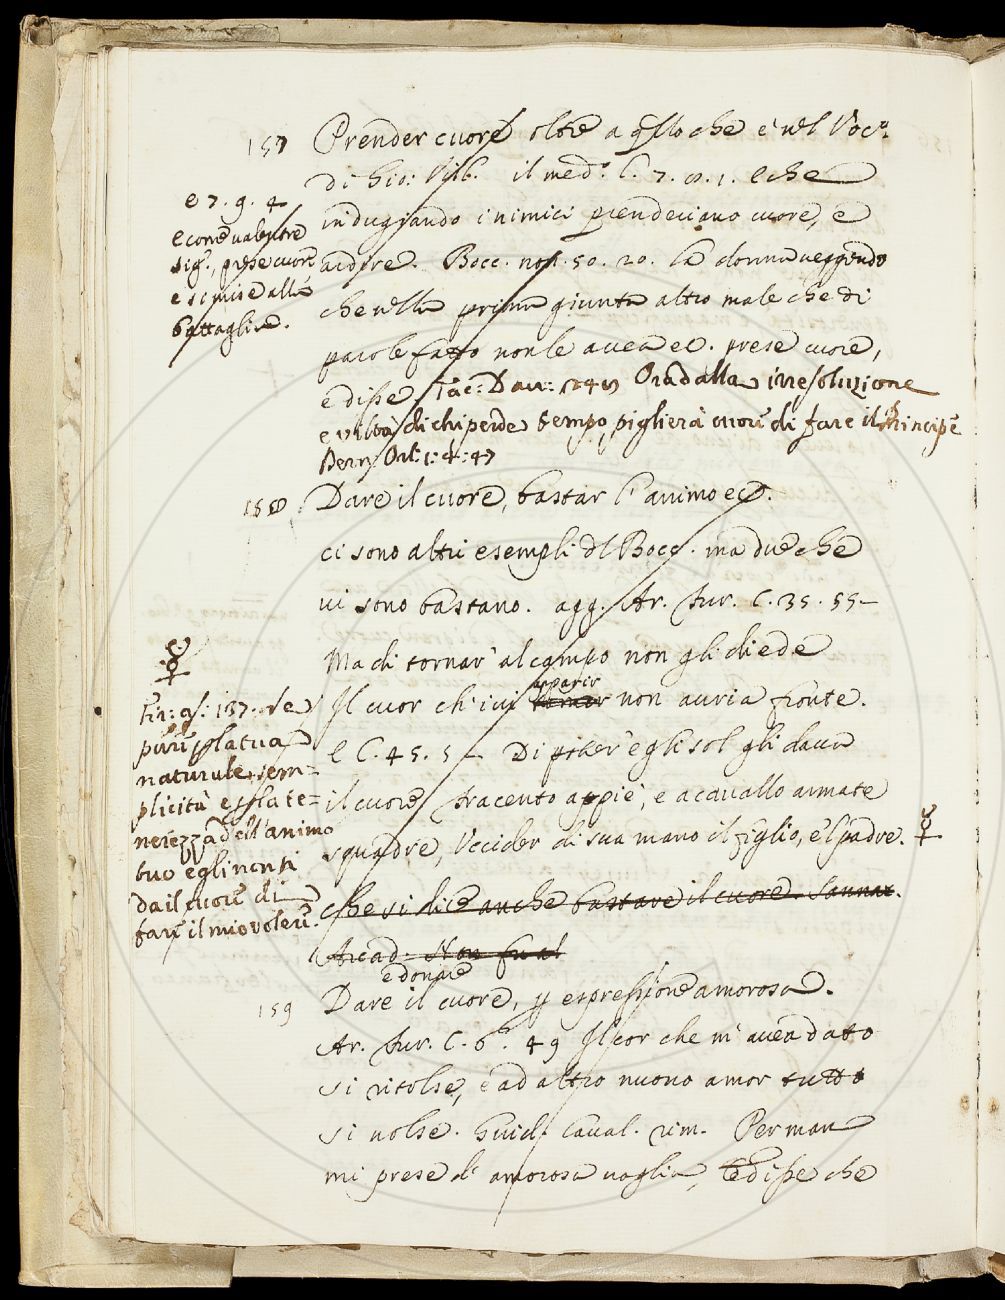 157 Prender cuore oltre a q̃llo che è nel Voc.º
di Gio: Vill. il med.º l. 7. 8. 1. e che
indugiando i nimici prendeciano cuore, e
ardire. Bocc. nov. 50. 20. La donna veggendo
che nella prima giunta altro male che di
parole fatto non le avea ec. prese cuore,
e disse Tac: Dav: Ora dalla irresoluzione
e viltà di chi perde tempo, piglierà cuore di fare il Principe
Bern Orl: 1: 4: 47
e 7. 9. 4
e come valentre
sig., prese cuore
e si mise alla
battaglia.
158 Dare il cuore, bastar l'animo ec.
ci sono altri esempli del Bocc. ma due che
vi sono bastano. agg. Ar. fur. C. 35. 55
Ma di tornar' al campo non gli diede
Il cuor ch'ivi apparir non auria fronte.
e C. 45. 5 Di poter' egli sol gli dava
il cuore tracento appie, e a cavallo armate
squadre, Uccider di sua mano il figlio, e'l padre. ♀
che si dice anche bastare il cuore. Sannaz.
Arcad: Non fu al
e ♀
Fir: 137. le
naturale sem=
plicità e la te=
nerezza dell'animo
tuo egli non ti
da il cuore di
fare il mio volere.
159 Dare il cuore, e donare p espressione amorosa.
Ar. fur. C. 6. 49 Il cor che m' avea dato
si ritolse, e ad altro nuovo amor tutto
si volse. Guid. Caval. rim. Per man
mi prese d' amorosa voglia, e disse che